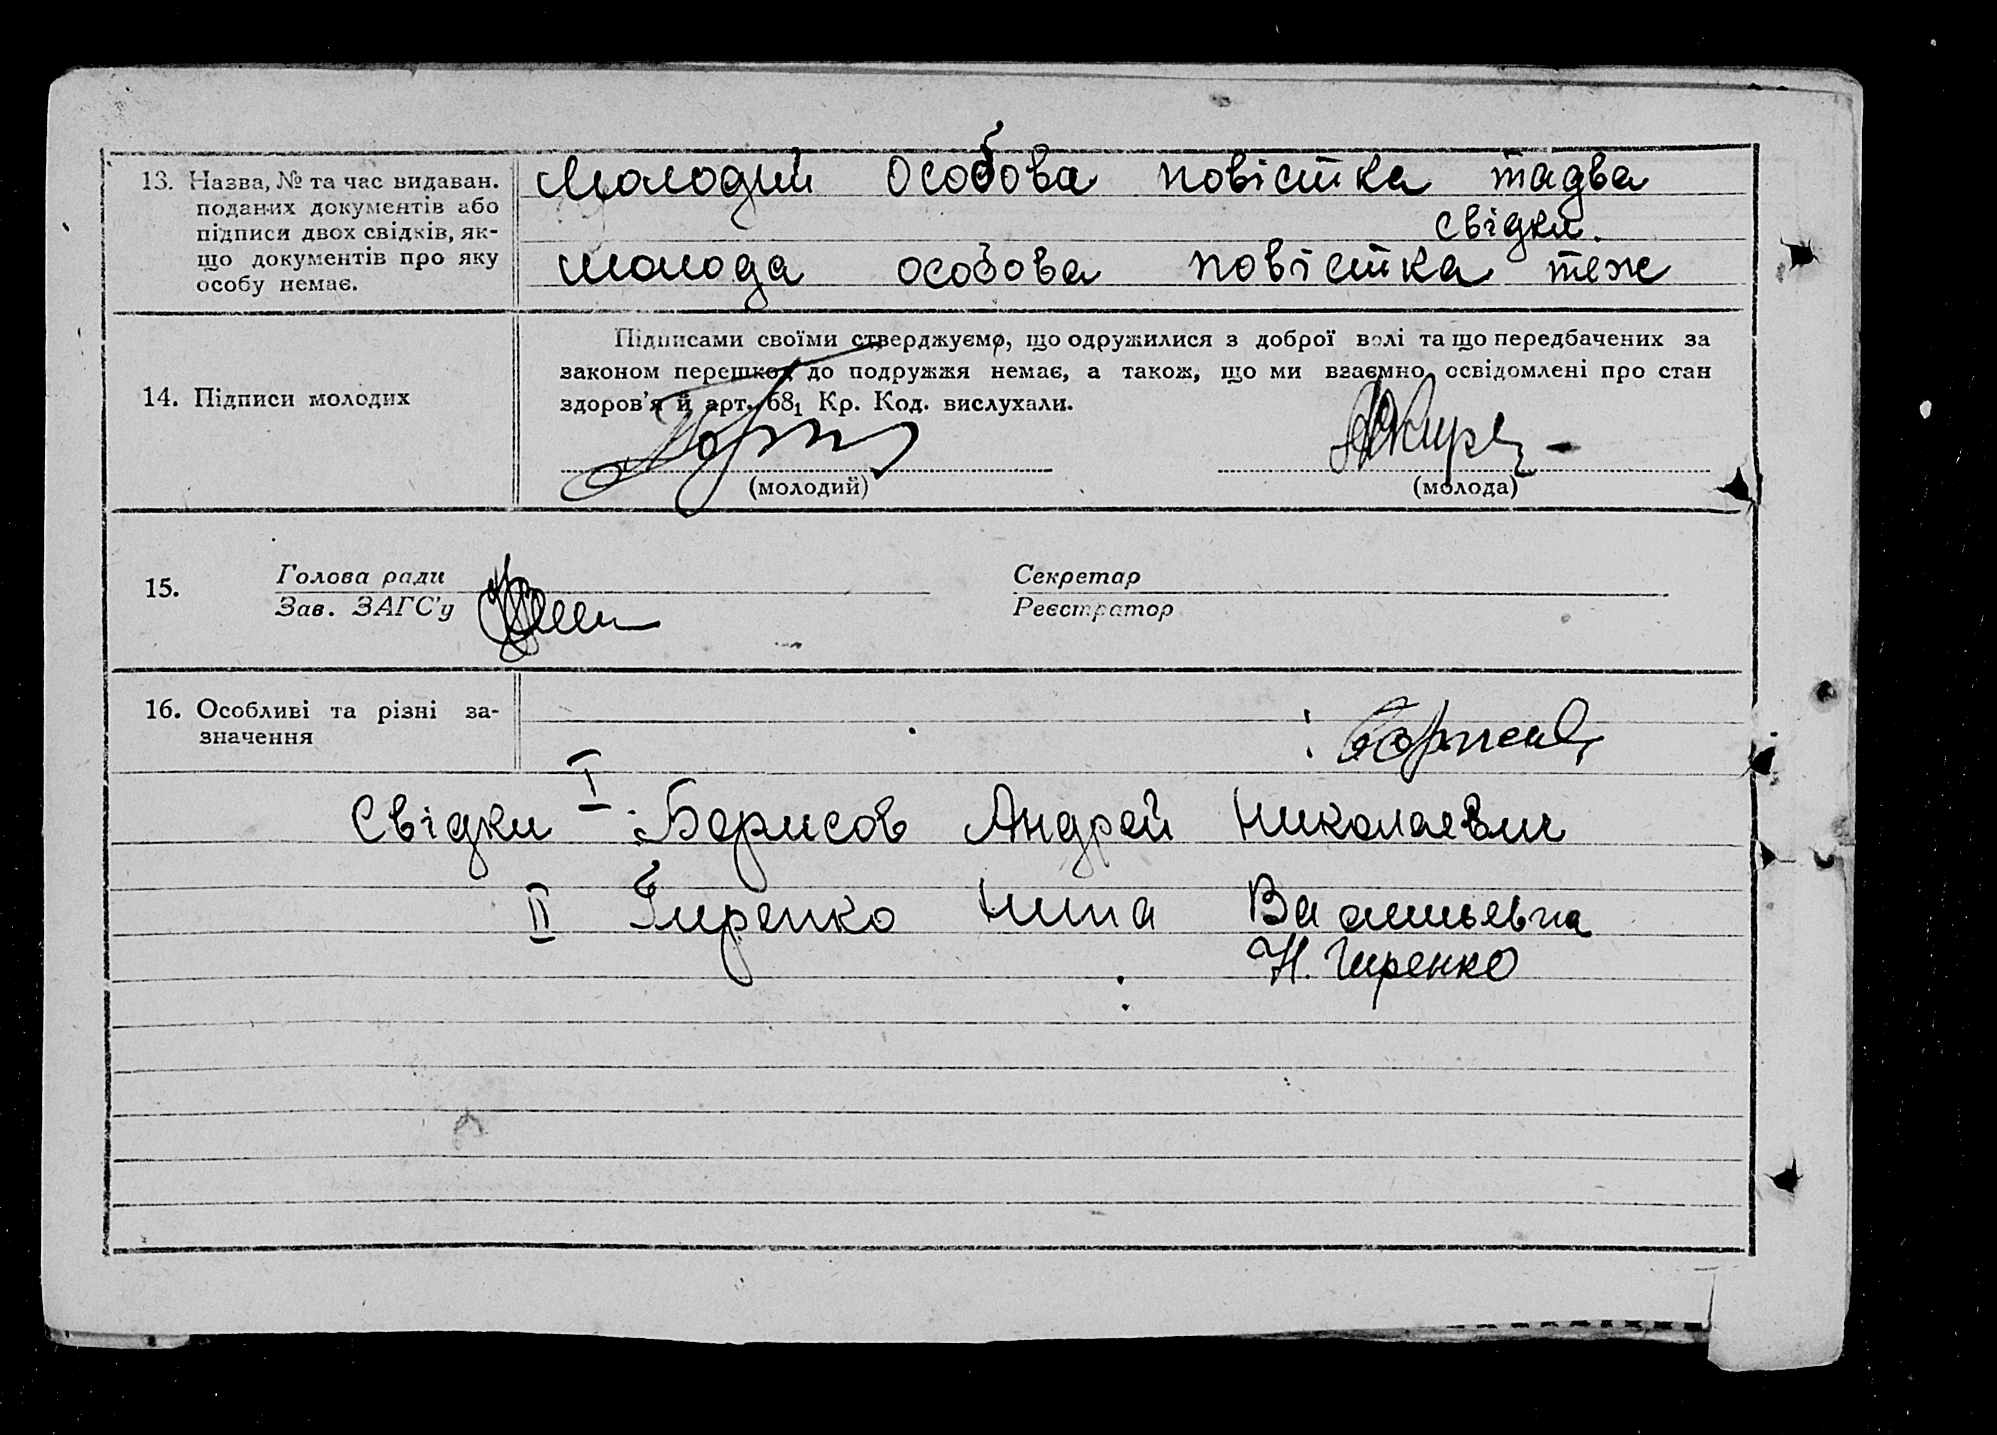 13. Назва, № та час видаван.
поданих документів або
підписи двох свідків, як-
що документів про яку
особу немає.
Молодий особова повістка та два
свідки.
молода особова повістка теж
14. Підписи молодих
Підписами своїми стверджуємо, що одружилися з доброї волі та що передбачених за
законом перешкод до подружжя немає, а також, що ми взаємно освідомлені про стан
здоров'я й арт. 68₁ Кр. Код. вислухали.
(молодий) (молода)
15. Голова ради Секретар
Зав. ЗАГС'у Реєстратор
16. Особливі та різні за-
значення
Свідки I Борисов Андрей Николаевич
II Гиренко Нина Васильевна
Н. Гиренко